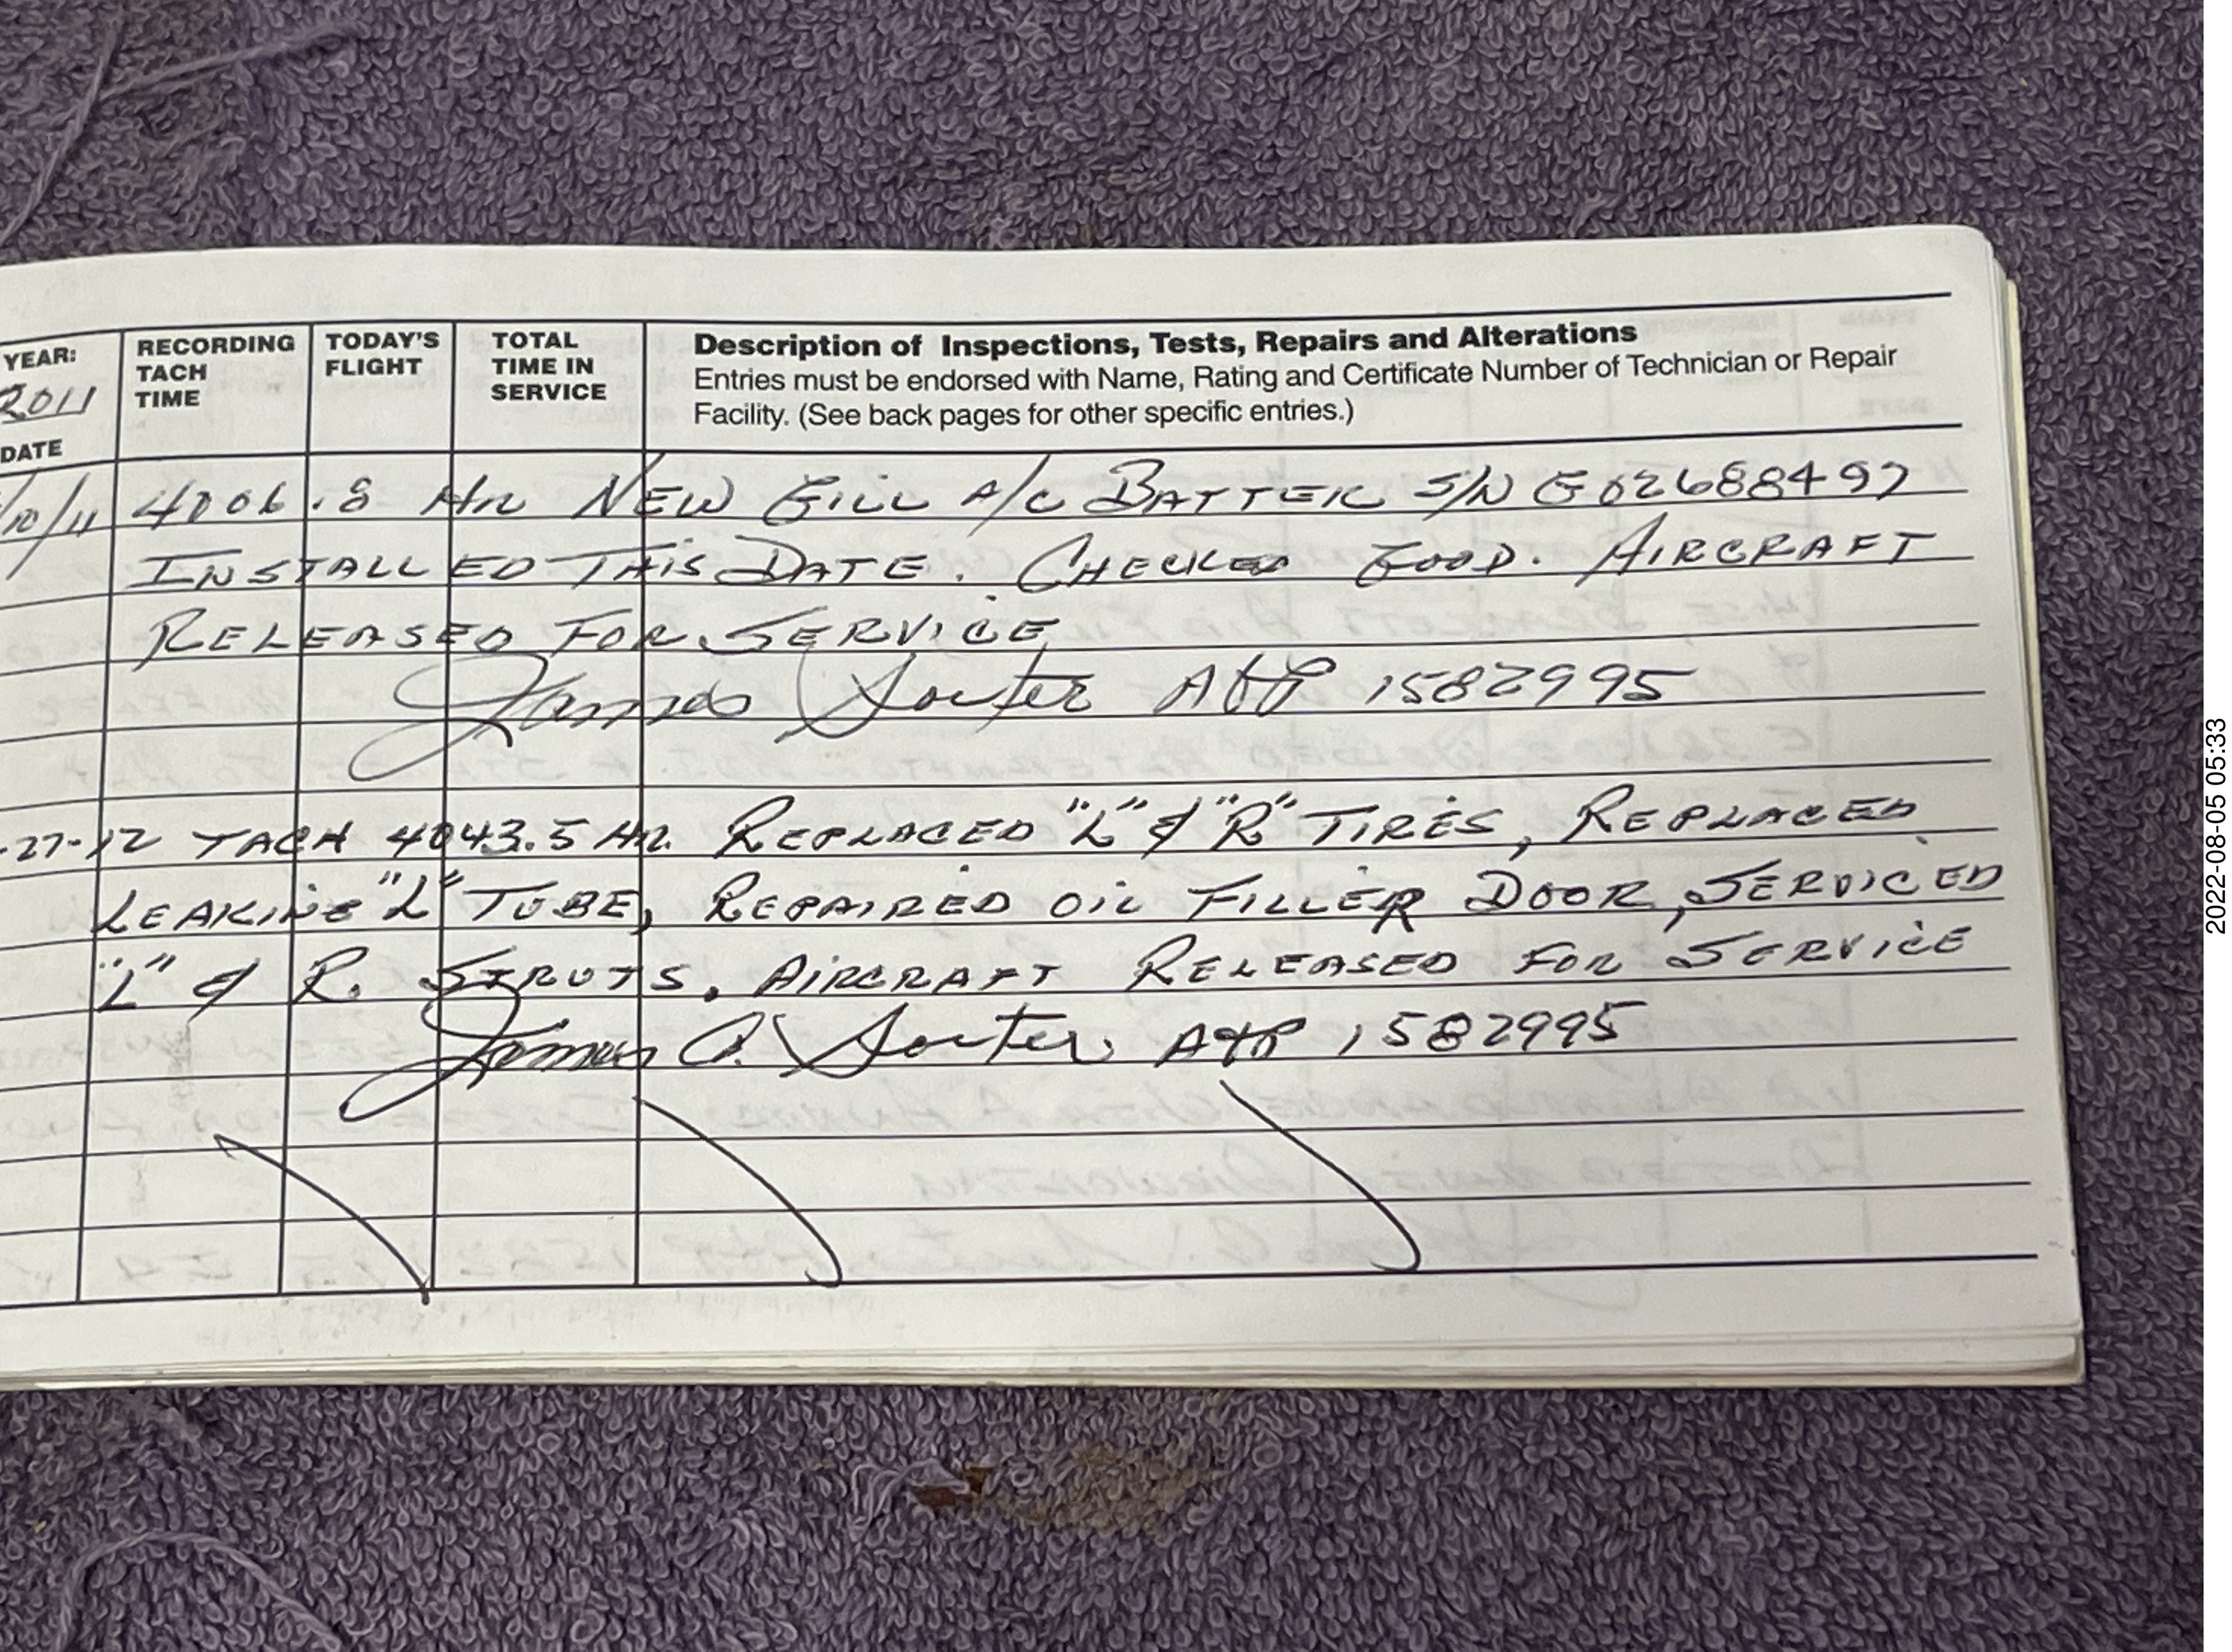 YEAR:
2011
DATE
RECORDING TACH TIME
TODAY'S FLIGHT
TOTAL TIME IN SERVICE
Description of Inspections, Tests, Repairs and Alterations
Entries must be endorsed with Name, Rating and Certificate Number of Technician or Repair
Facility. (See back pages for other specific entries.)
/10/11 4006.8 HR NEW GILL A/C BATTER S/N G02688497
INSTALLED THIS DATE. CHECKED GOOD. AIRCRAFT
RELEASED FOR SERVICE
James Souter A&P 1582995
-27-12 TACH 4043.5 HR. REPLACED "L" & "R" TIRES, REPLACED
LEAKING "L" TUBE, REPAIRED OIL FILLER DOOR, SERVICED
"L" & R. STRUTS. AIRCRAFT RELEASED FOR SERVICE
James A. Souter A&P 1582995
2022-08-05 05:33